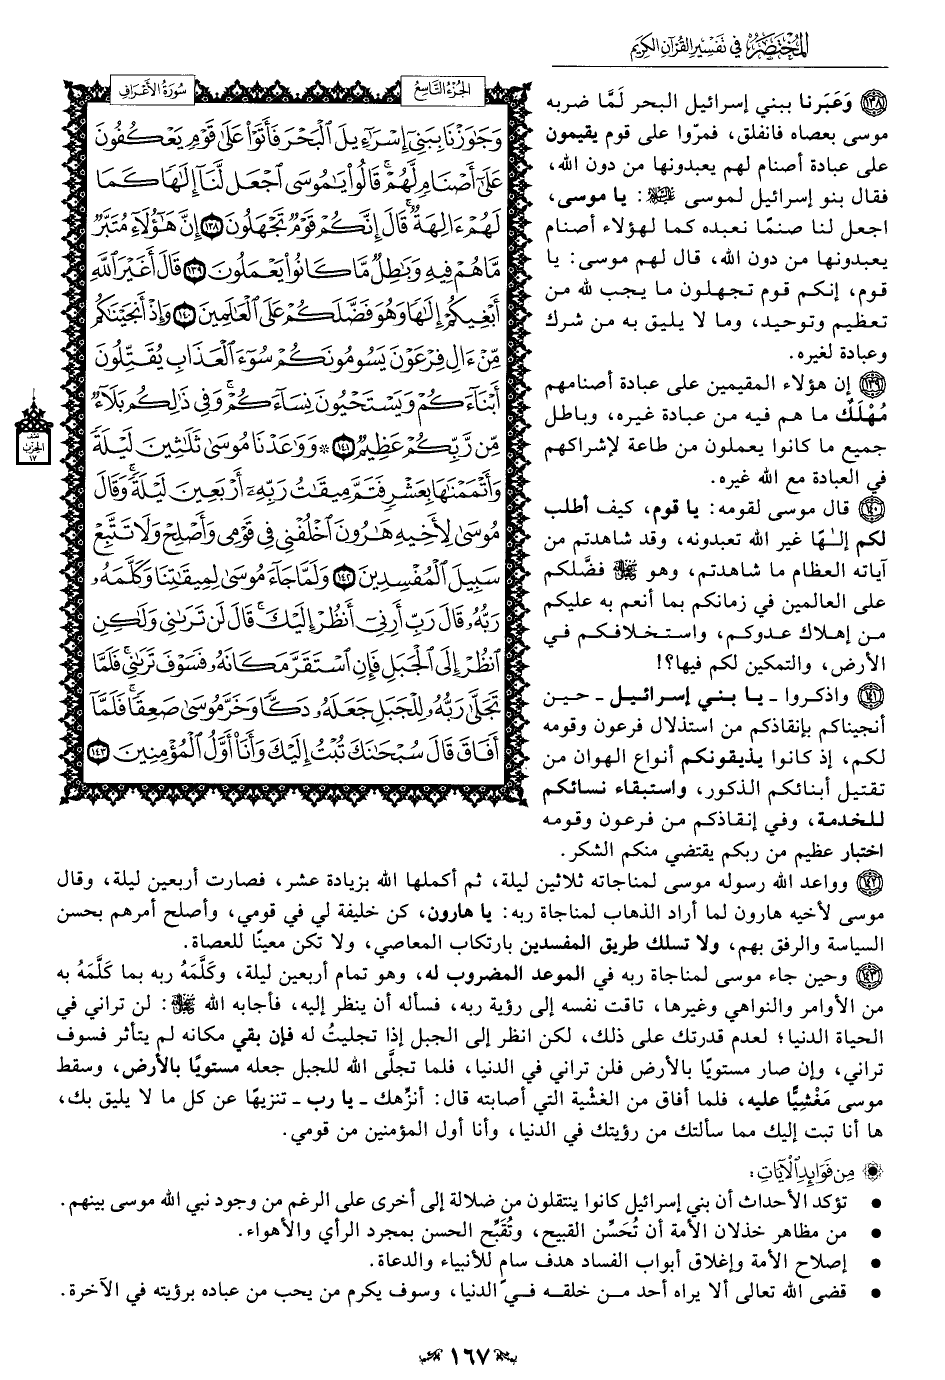 المختصر في تفسير القرآن الكريم
سورة الأعراف
الجزء التاسع
وَجَٰوَزْنَا بِبَنِيٓ إِسْرَٰٓءِيلَ ٱلْبَحْرَ فَأَتَوْا۟ عَلَىٰ قَوْمٍ يَعْكُفُونَ
عَلَىٰٓ أَصْنَامٍ لَّهُمْ ۚ قَالُوا۟ يَٰمُوسَى ٱجْعَل لَّنَآ إِلَٰهًا كَمَا
لَهُمْ ءَالِهَةٌ ۚ قَالَ إِنَّكُمْ قَوْمٌ تَجْهَلُونَ ١٣٨ إِنَّ هَٰٓؤُلَآءِ مُتَبَّرٌ
مَّا هُمْ فِيهِ وَبَٰطِلٌ مَّا كَانُوا۟ يَعْمَلُونَ ١٣٩ قَالَ أَغَيْرَ ٱللَّهِ
أَبْغِيكُمْ إِلَٰهًا وَهُوَ فَضَّلَكُمْ عَلَى ٱلْعَٰلَمِينَ ١٤٠ وَإِذْ أَنجَيْنَٰكُم
مِّنْ ءَالِ فِرْعَوْنَ يَسُومُونَكُمْ سُوٓءَ ٱلْعَذَابِ يُقَتِّلُونَ
أَبْنَآءَكُمْ وَيَسْتَحْيُونَ نِسَآءَكُمْ ۚ وَفِي ذَٰلِكُم بَلَآءٌ
مِّن رَّبِّكُمْ عَظِيمٌ ١٤١ ۞ وَوَٰعَدْنَا مُوسَىٰ ثَلَٰثِينَ لَيْلَةً
وَأَتْمَمْنَٰهَا بِعَشْرٍ فَتَمَّ مِيقَٰتُ رَبِّهِۦٓ أَرْبَعِينَ لَيْلَةً ۚ وَقَالَ
مُوسَىٰ لِأَخِيهِ هَٰرُونَ ٱخْلُفْنِي فِي قَوْمِي وَأَصْلِحْ وَلَا تَتَّبِعْ
سَبِيلَ ٱلْمُفْسِدِينَ ١٤٢ وَلَمَّا جَآءَ مُوسَىٰ لِمِيقَٰتِنَا وَكَلَّمَهُۥ
رَبُّهُۥ قَالَ رَبِّ أَرِنِيٓ أَنظُرْ إِلَيْكَ ۚ قَالَ لَن تَرَىٰنِي وَلَٰكِنِ
ٱنظُرْ إِلَى ٱلْجَبَلِ فَإِنِ ٱسْتَقَرَّ مَكَانَهُۥ فَسَوْفَ تَرَىٰنِي ۚ فَلَمَّا
تَجَلَّىٰ رَبُّهُۥ لِلْجَبَلِ جَعَلَهُۥ دَكًّا وَخَرَّ مُوسَىٰ صَعِقًا ۚ فَلَمَّآ
أَفَاقَ قَالَ سُبْحَٰنَكَ تُبْتُ إِلَيْكَ وَأَنَا۠ أَوَّلُ ٱلْمُؤْمِنِينَ ١٤٣
نصف
الحزب
١٧
١٣٨ وَعَبَرنا ببني إسرائيل البحر لَمَّا ضربه
موسى بعصاه فانفلق، فمرّوا على قوم يقيمون
على عبادة أصنام لهم يعبدونها من دون الله،
فقال بنو إسرائيل لموسى عليه السلام: يا موسى،
اجعل لنا صنمًا نعبده كما لهؤلاء أصنام
يعبدونها من دون الله، قال لهم موسى: يا
قوم، إنكم قوم تجهلون ما يجب لله من
تعظيم وتوحيد، وما لا يليق به من شرك
وعبادة لغيره.
١٣٩ إن هؤلاء المقيمين على عبادة أصنامهم
مُهْلَك ما هم فيه من عبادة غيره، وباطل
جميع ما كانوا يعملون من طاعة لإشراكهم
في العبادة مع الله غيره.
١٤٠ قال موسى لقومه: يا قوم، كيف أطلب
لكم إلـٰهًا غير الله تعبدونه، وقد شاهدتم من
آياته العظام ما شاهدتم، وهو ﷻ فضَّلكم
على العالمين في زمانكم بما أنعم به عليكم
من إهلاك عدوكم، واستخلافكم في
الأرض، والتمكين لكم فيها؟!
١٤١ واذكروا ـ يا بني إسرائيل ـ حين
أنجيناكم بإنقاذكم من استذلال فرعون وقومه
لكم، إذ كانوا يذيقونكم أنواع الهوان من
تقتيل أبنائكم الذكور، واستبقاء نسائكم
للخدمة، وفي إنقاذكم من فرعون وقومه
اختبار عظيم من ربكم يقتضي منكم الشكر.
١٤٢ وواعد الله رسوله موسى لمناجاته ثلاثين ليلة، ثم أكملها الله بزيادة عشر، فصارت أربعين ليلة، وقال
موسى لأخيه هارون لما أراد الذهاب لمناجاة ربه: يا هارون، كن خليفة لي في قومي، وأصلح أمرهم بحسن
السياسة والرفق بهم، ولا تسلك طريق المفسدين بارتكاب المعاصي، ولا تكن معينًا للعصاة.
١٤٣ وحين جاء موسى لمناجاة ربه في الموعد المضروب له، وهو تمام أربعين ليلة، وكَلَّمَهُ ربه بما كَلَّمَهُ به
من الأوامر والنواهي وغيرها، تاقت نفسه إلى رؤية ربه، فسأله أن ينظر إليه، فأجابه الله ﷻ: لن تراني في
الحياة الدنيا؛ لعدم قدرتك على ذلك، لكن انظر إلى الجبل إذا تجليتُ له فإن بقي مكانه لم يتأثر فسوف
تراني، وإن صار مستويًا بالأرض فلن تراني في الدنيا، فلما تجلَّى الله للجبل جعله مستويًا بالأرض، وسقط
موسى مَغْشِيًّا عليه، فلما أفاق من الغشْية التي أصابته قال: أنزِّهك ـ يا رب ـ تنزيهًا عن كل ما لا يليق بك،
ها أنا تبت إليك مما سألتك من رؤيتك في الدنيا، وأنا أول المؤمنين من قومي.
من فوائد الآيات:
• تؤكد الأحداث أن بني إسرائيل كانوا ينتقلون من ضلالة إلى أخرى على الرغم من وجود نبي الله موسى بينهم.
• من مظاهر خذلان الأمة أن تُحَسِّن القبيح، وتُقَبِّح الحسن بمجرد الرأي والأهواء.
• إصلاح الأمة وإغلاق أبواب الفساد هدف سامٍ للأنبياء والدعاة.
• قضى الله تعالى ألا يراه أحد من خلقه في الدنيا، وسوف يكرم من يحب من عباده برؤيته في الآخرة.
١٦٧